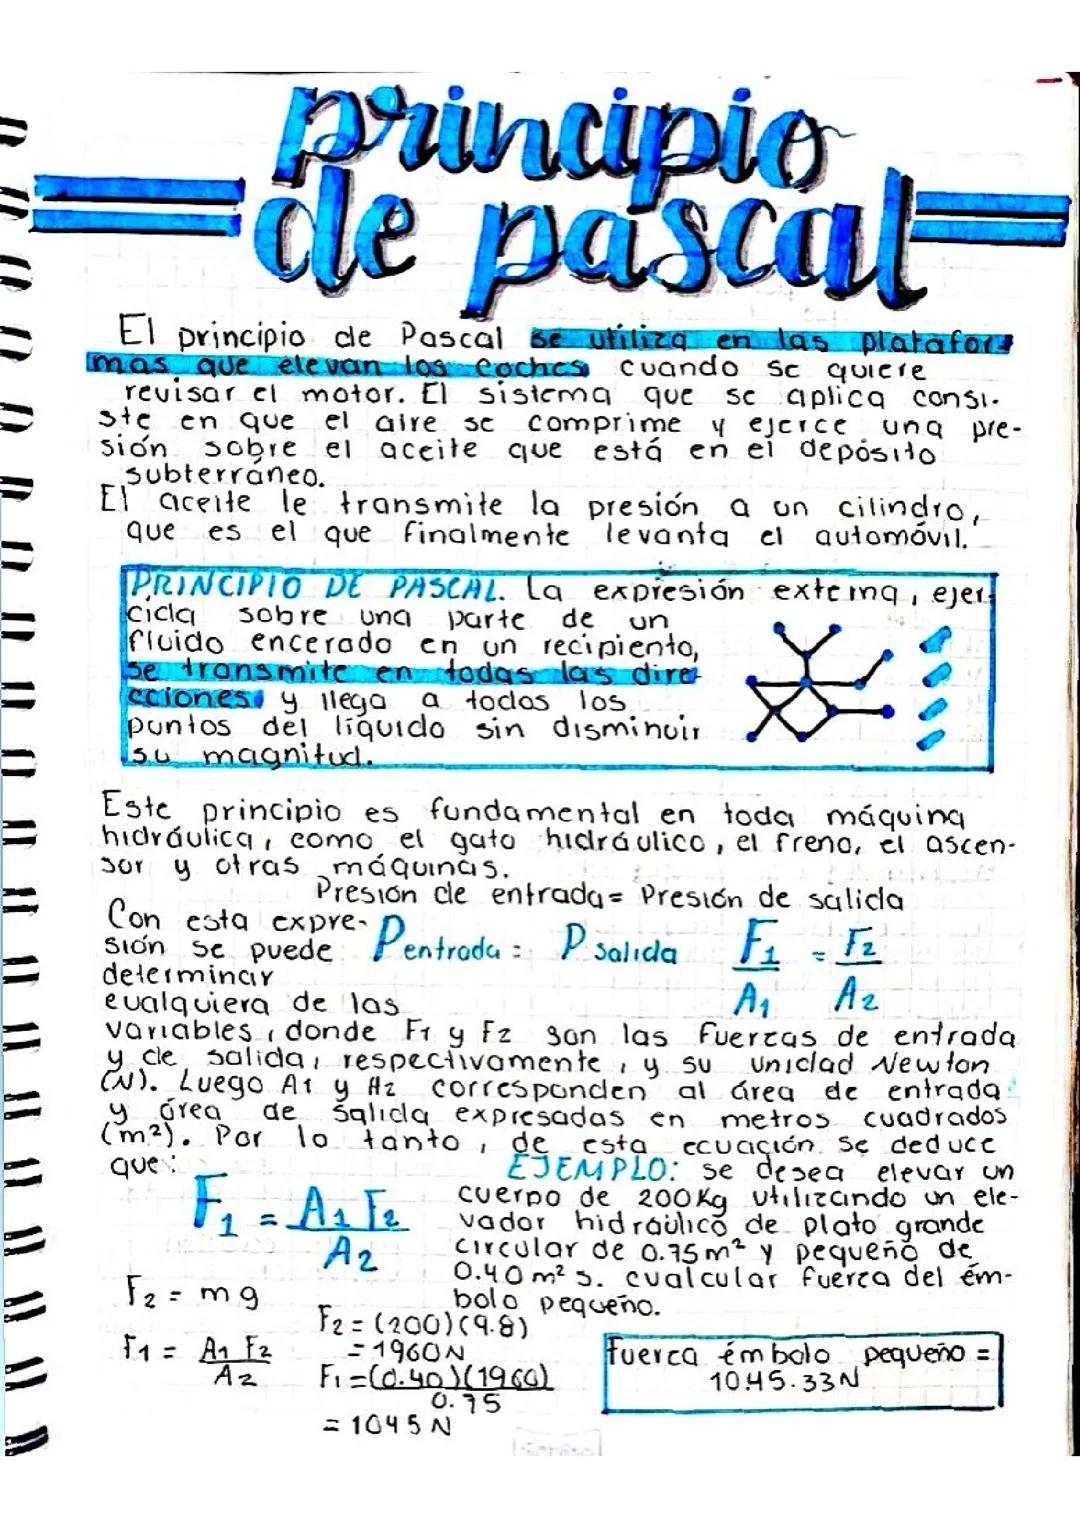 principio
de pascal
El principio de Pascal se utiliza en las platafor-
mas que elevan los coches cuando se quiere
revisar el motor. El sistema que se aplica consi-
ste en que el aire se comprime y ejerce una pre-
sión sobre el aceite que está en el depósito
subterráneo.
El aceite le transmite la presión a un cilindro,
que es el que finalmente levanta el automóvil.
PRINCIPIO DE PASCAL. La expresión externa, ejer-
cida sobre una parte de un
fluido encerado en un recipiento,
se transmite en todas las dire-
cciones y llega a todos los
puntos del líquido sin disminuir
su magnitud.
Este principio es fundamental en toda máquina
hidráulica, como el gato hidráulico, el freno, el ascen-
sor y otras máquinas.
Presión de entrada = Presión de salida
Con esta expre-
sión se puede
determinar
cualquiera de las
P entrada = P salida F1/A1 = F2/A2
variables, donde F1 y F2 son las fuerzas de entrada
y de salida, respectivamente, y su unidad Newton
(N). Luego A1 y A2 corresponden al área de entrada
y área de salida expresadas en metros cuadrados
(m²). Por lo tanto, de esta ecuación se deduce
que:
F1 = A1 F2 / A2
EJEMPLO: se desea elevar un
cuerpo de 200Kg utilizando un ele-
vador hidraúlico de plato grande
circular de 0.75 m² y pequeño de
0.40 m² s. cualcular fuerca del ém-
bolo pequeño.
F2 = mg
F1 = A1 F2 / A2
F2 = (200)(9.8)
= 1960N
F1 = (0.40)(1960) / 0.75
= 1045 N
fuerca émbolo pequeño =
1045.33N